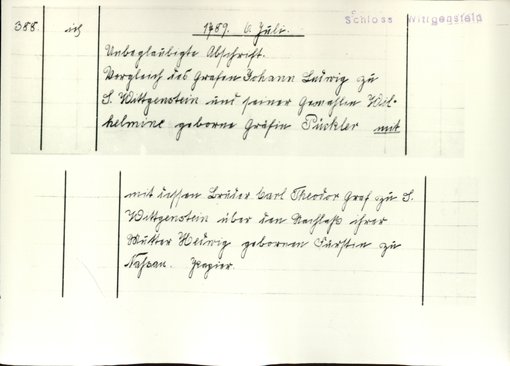 Schloss Wittgenstein
388. ich 1789. 6. Juli.
Unbeglaubigte Abschrift.
Vergleich des Grafen Johann Ludwig zu
S. Wittgenstein und seiner Gemahlin Wil-
helmine geborne Gräfin Pückler mit
mit dessen Bruder Carl Theodor Graf zu S.
Wittgenstein über den Nachlaß ihrer
Mutter Hedwig gebornen Fürstin zu
Nassau. Papier.